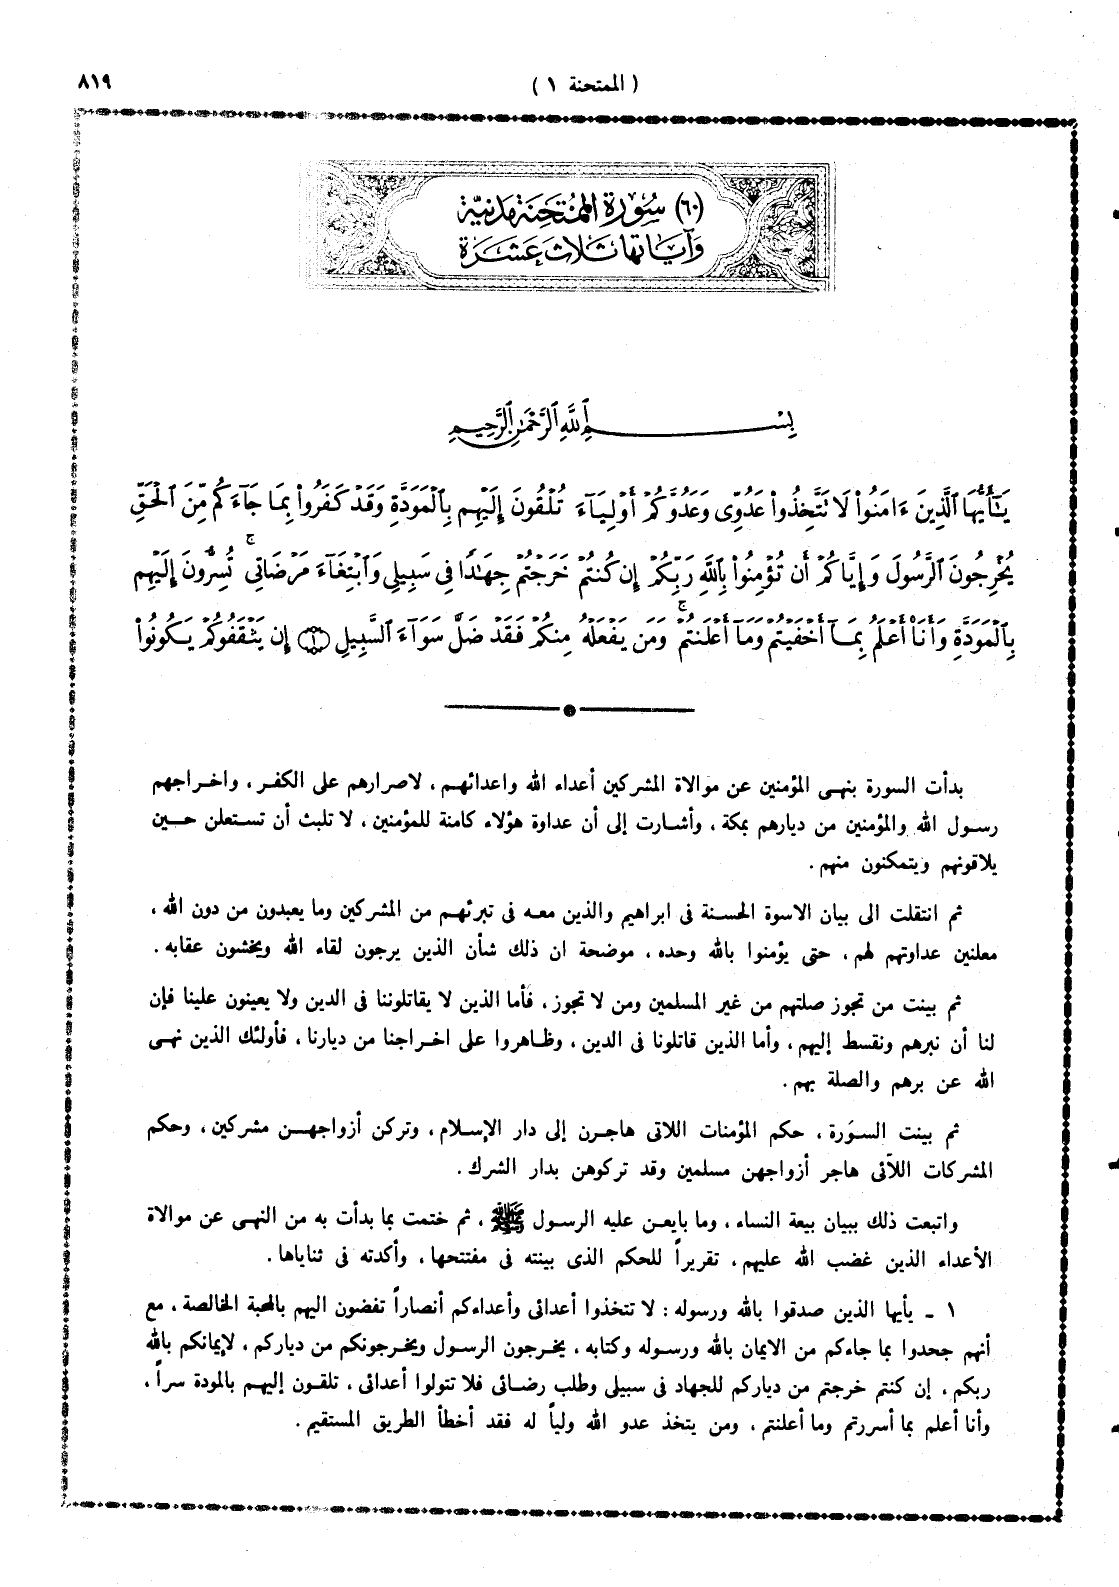 ( الممتحنة ١ ) ٨١٩
(٦٠) سُورَةُ المُمْتَحِنَةِ مَدَنِيَّة
وَآيَاتُهَا ثَلَاثَ عَشَرَة
بِسْمِ ٱللَّهِ ٱلرَّحْمَٰنِ ٱلرَّحِيمِ
يَٰٓأَيُّهَا ٱلَّذِينَ ءَامَنُوا۟ لَا تَتَّخِذُوا۟ عَدُوِّى وَعَدُوَّكُمْ أَوْلِيَآءَ تُلْقُونَ إِلَيْهِم بِٱلْمَوَدَّةِ وَقَدْ كَفَرُوا۟ بِمَا جَآءَكُم مِّنَ ٱلْحَقِّ
يُخْرِجُونَ ٱلرَّسُولَ وَإِيَّاكُمْ أَن تُؤْمِنُوا۟ بِٱللَّهِ رَبِّكُمْ إِن كُنتُمْ خَرَجْتُمْ جِهَٰدًا فِى سَبِيلِى وَٱبْتِغَآءَ مَرْضَاتِى ۚ تُسِرُّونَ إِلَيْهِم
بِٱلْمَوَدَّةِ وَأَنَا۠ أَعْلَمُ بِمَآ أَخْفَيْتُمْ وَمَآ أَعْلَنتُمْ ۚ وَمَن يَفْعَلْهُ مِنكُمْ فَقَدْ ضَلَّ سَوَآءَ ٱلسَّبِيلِ ﴿١﴾ إِن يَثْقَفُوكُمْ يَكُونُوا۟
بدأت السورة بنهى المؤمنين عن موالاة المشركين أعداء الله واعدائهم ، لاصرارهم على الكفر ، واخراجهم
رسول الله والمؤمنين من ديارهم بمكة ، وأشارت إلى أن عداوة هؤلاء كامنة للمؤمنين ، لا تلبث أن تستعلن حين
يلاقونهم ويتمكنون منهم .
ثم انتقلت الى بيان الاسوة الحسنة فى ابراهيم والذين معه فى تبرئهم من المشركين وما يعبدون من دون الله ،
معلنين عداوتهم لهم ، حتى يؤمنوا بالله وحده ، موضحة ان ذلك شأن الذين يرجون لقاء الله ويخشون عقابه .
ثم بينت من تجوز صلتهم من غير المسلمين ومن لا تجوز ، فأما الذين لا يقاتلوننا فى الدين ولا يعينون علينا فإن
لنا أن نبرهم ونقسط إليهم ، وأما الذين قاتلونا فى الدين ، وظاهروا على اخراجنا من ديارنا ، فأولئك الذين نهى
الله عن برهم والصلة بهم .
ثم بينت السورة ، حكم المؤمنات اللاتى هاجرن إلى دار الإسلام ، وتركن أزواجهن مشركين ، وحكم
المشركات اللآئى هاجر أزواجهن مسلمين وقد تركوهن بدار الشرك .
واتبعت ذلك ببيان بيعة النساء ، وما بايعن عليه الرسول ﷺ ، ثم ختمت بما بدأت به من النهى عن موالاة
الأعداء الذين غضب الله عليهم ، تقريراً للحكم الذى بينته فى مفتتحها ، وأكدته فى ثناياها .
١ ـ يأيها الذين صدقوا بالله ورسوله : لا تتخذوا أعدائى وأعداءكم أنصاراً تفضون اليهم بالمحبة الخالصة ، مع
أنهم جحدوا بما جاءكم من الايمان بالله ورسوله وكتابه ، يخرجون الرسول ويخرجونكم من دياركم ، لإيمانكم بالله
ربكم ، إن كنتم خرجتم من دياركم للجهاد فى سبيلى وطلب رضائى فلا تتولوا أعدائى ، تلقون إليهم بالمودة سراً ،
وأنا أعلم بما أسررتم وما أعلنتم ، ومن يتخذ عدو الله ولياً له فقد أخطأ الطريق المستقيم .